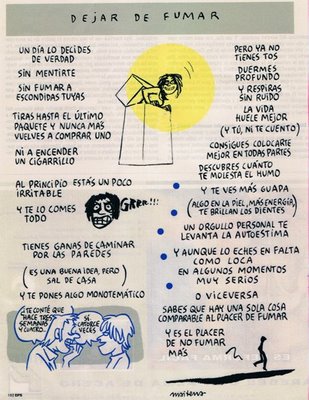 DEJAR DE FUMAR
UN DÍA LO DECIDES
DE VERDAD
SIN MENTIRTE
SIN FUMAR A
ESCONDIDAS TUYAS
TIRAS HASTA EL ÚLTIMO
PAQUETE Y NUNCA MAS
VUELVES A COMPRAR UNO
NI A ENCENDER
UN CIGARRILLO
AL PRINCIPIO ESTÁS UN POCO
IRRITABLE
GRRR!!!
Y TE LO COMES
TODO
TIENES GANAS DE CAMINAR
POR LAS PAREDES
(ES UNA BUENA IDEA, PERO
SAL DE CASA)
Y TE PONES ALGO MONOTEMÁTICO
¿TE CONTÉ QUE
HACE TRES
SEMANAS Y
CUATRO...
SÍ,
CATORCE
VECES
PERO YA NO
TIENES TOS
DUERMES
PROFUNDO
Y RESPIRAS
SIN RUIDO
LA VIDA
HUELE MEJOR
(Y TÚ, NI TE CUENTO)
CONSIGUES COLOCARTE
MEJOR EN TODAS PARTES
DESCUBRES CUÁNTO
TE MOLESTA EL HUMO
Y TE VES MAS GUAPA
(ALGO EN LA PIEL, MAS ENERGÍA,
TE BRILLAN LOS DIENTES)
UN ORGULLO PERSONAL TE
LEVANTA LA AUTOESTIMA
Y AUNQUE LO ECHES EN FALTA
COMO LOCA
EN ALGUNOS MOMENTOS
MUY SERIOS
O VICEVERSA
SABES QUE HAY UNA SOLA COSA
COMPARABLE AL PLACER DE FUMAR
Y ES EL PLACER
DE NO FUMAR
MAS
maitena
112 EPS